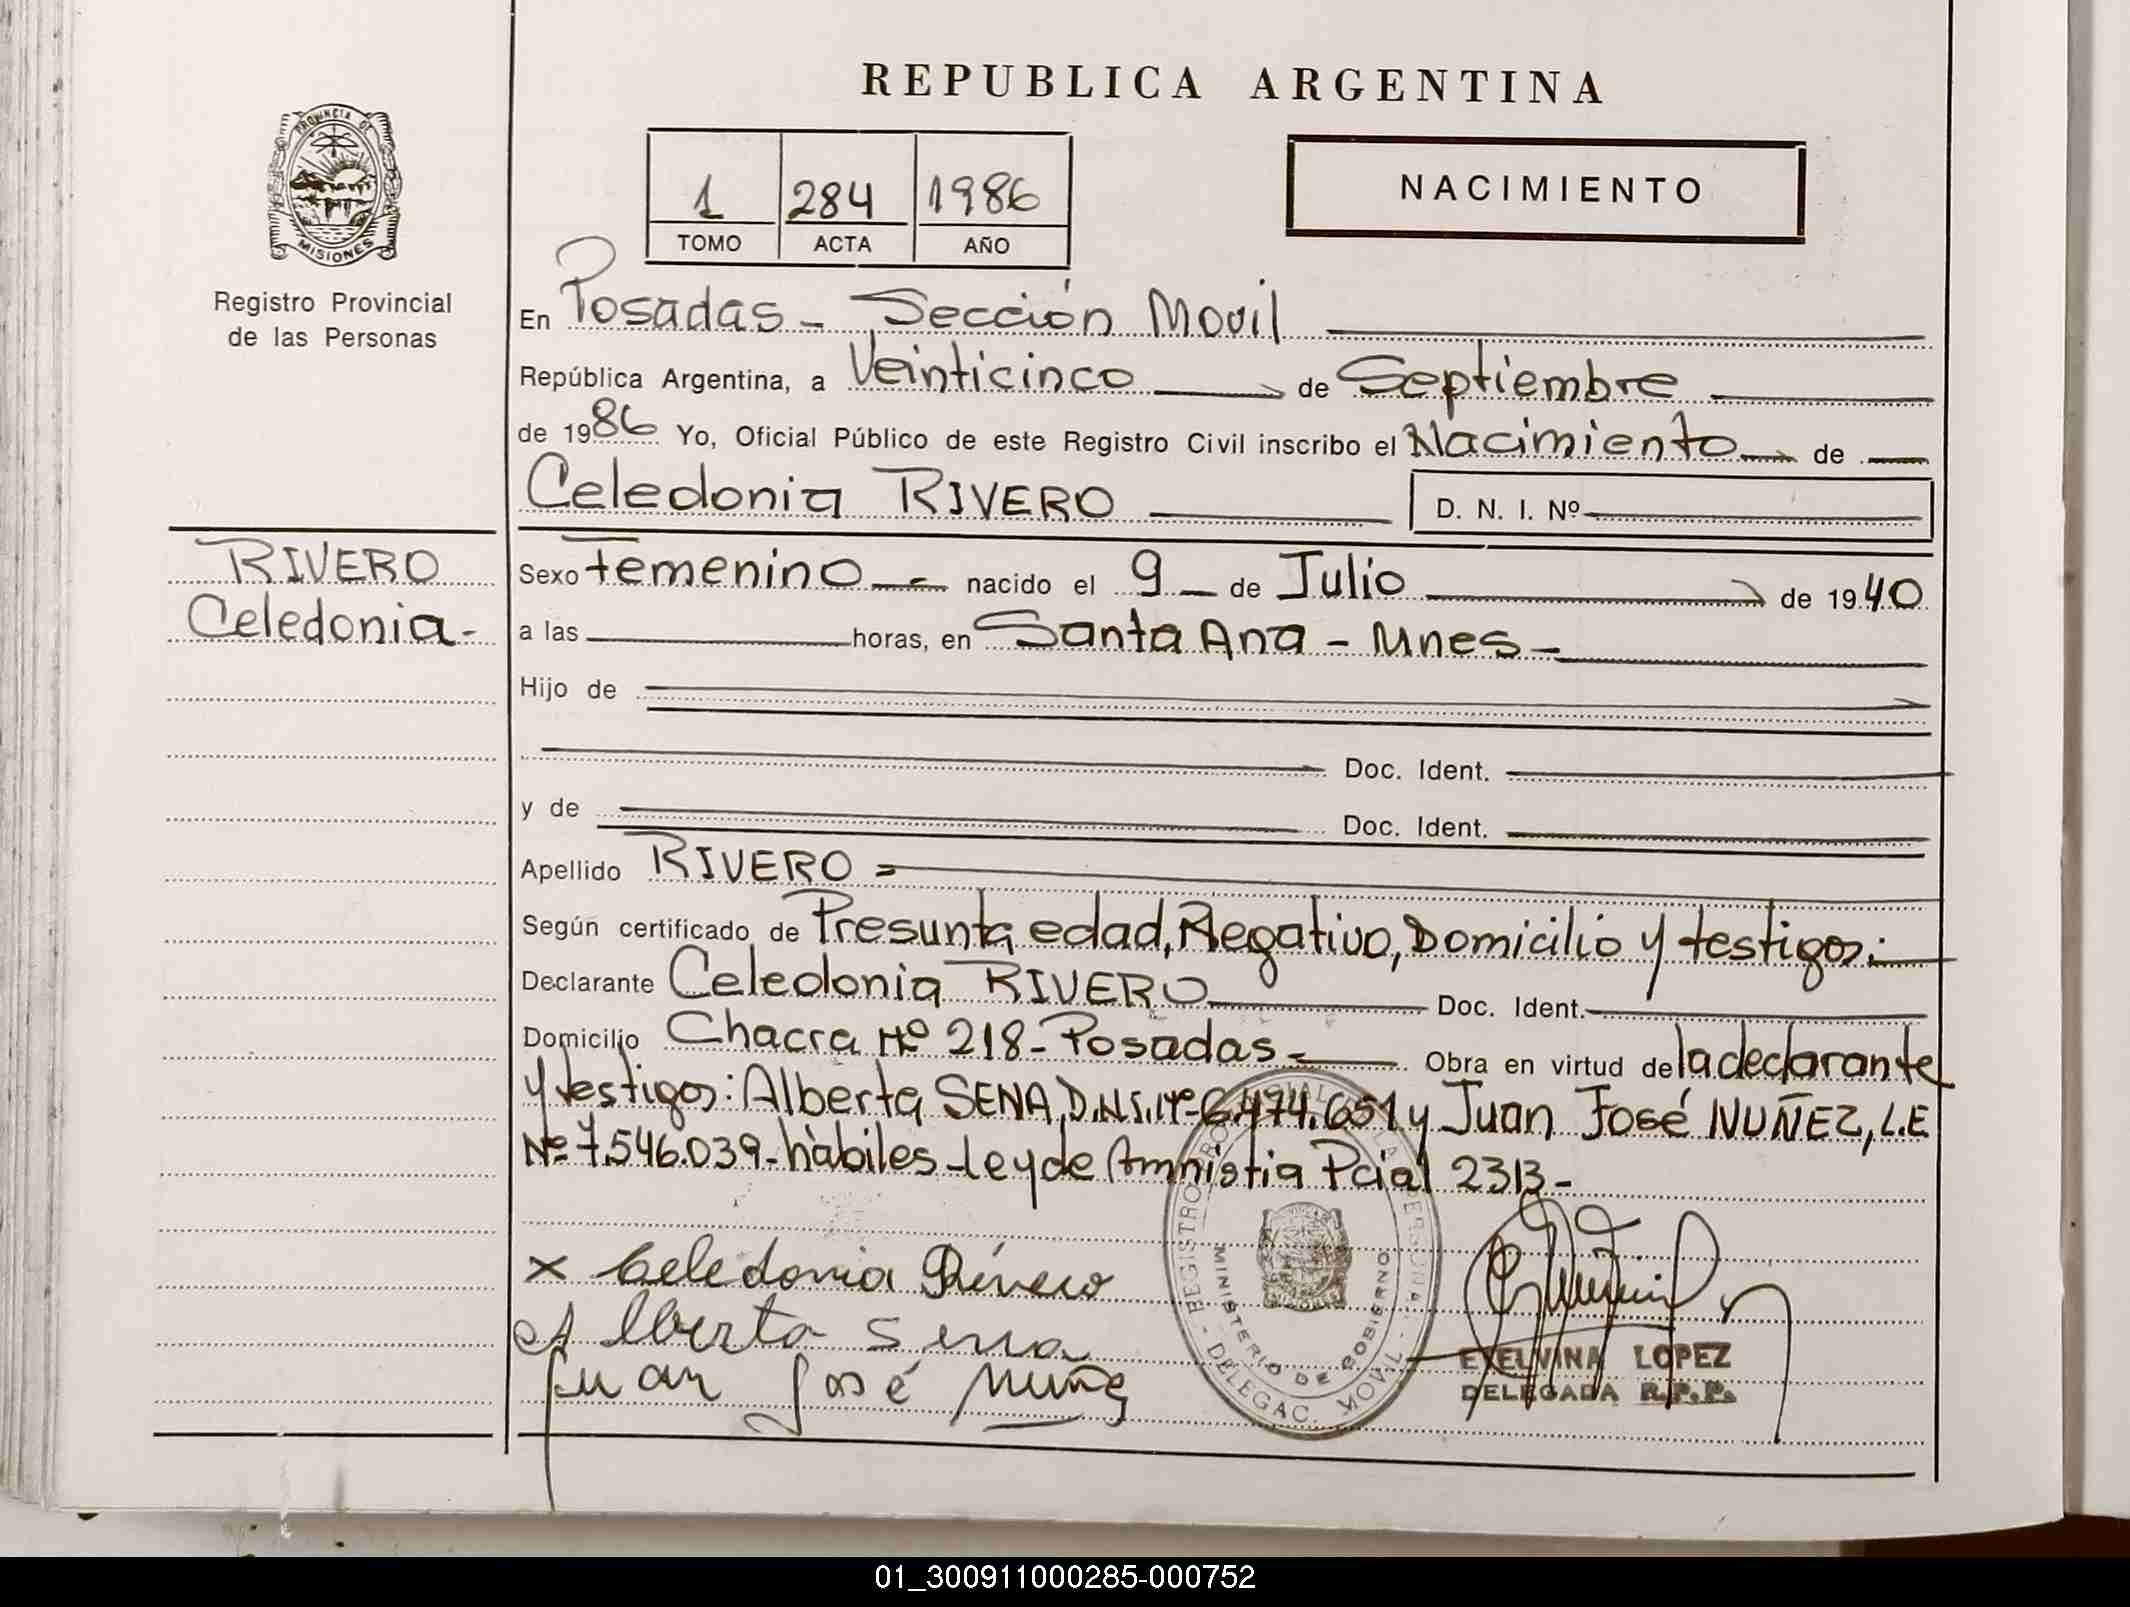 REPUBLICA ARGENTINA
PROVINCIA DE MISIONES
Registro Provincial
de las Personas
1 284 1986
TOMO ACTA AÑO
NACIMIENTO
En Posadas - Sección Movil
República Argentina, a Veinticinco de Septiembre
de 1986 Yo, Oficial Público de este Registro Civil inscribo el Nacimiento de
Celedonia RIVERO D. N. I. Nº
RIVERO
Celedonia-
Sexo Femenino nacido el 9 de Julio de 1940
a las horas, en Santa Ana - Mnes -
Hijo de
Doc. Ident.
y de Doc. Ident.
Apellido RIVERO =
Según certificado de Presunta edad, Negativo, Domicilio y testigos:
Declarante Celedonia RIVERO Doc. Ident.
Domicilio Chacra Nº 218- Posadas- Obra en virtud de la declarante
y testigos: Alberta SENA, D.N.I. Nº 6.474.651 y Juan José NUÑEZ, L.E
Nº 7.546.039- hàbiles - ley de Amnistia Pcial 2313-
x Celedonia Rivero
Alberta Sena
Juan José Nuñez
REGISTRO PROVINCIAL DE LAS PERSONAS - DELEGAC. MOVIL -
MINISTERIO DE GOBIERNO
EXELVINA LOPEZ
DELEGADA R.P.P.
01_300911000285-000752